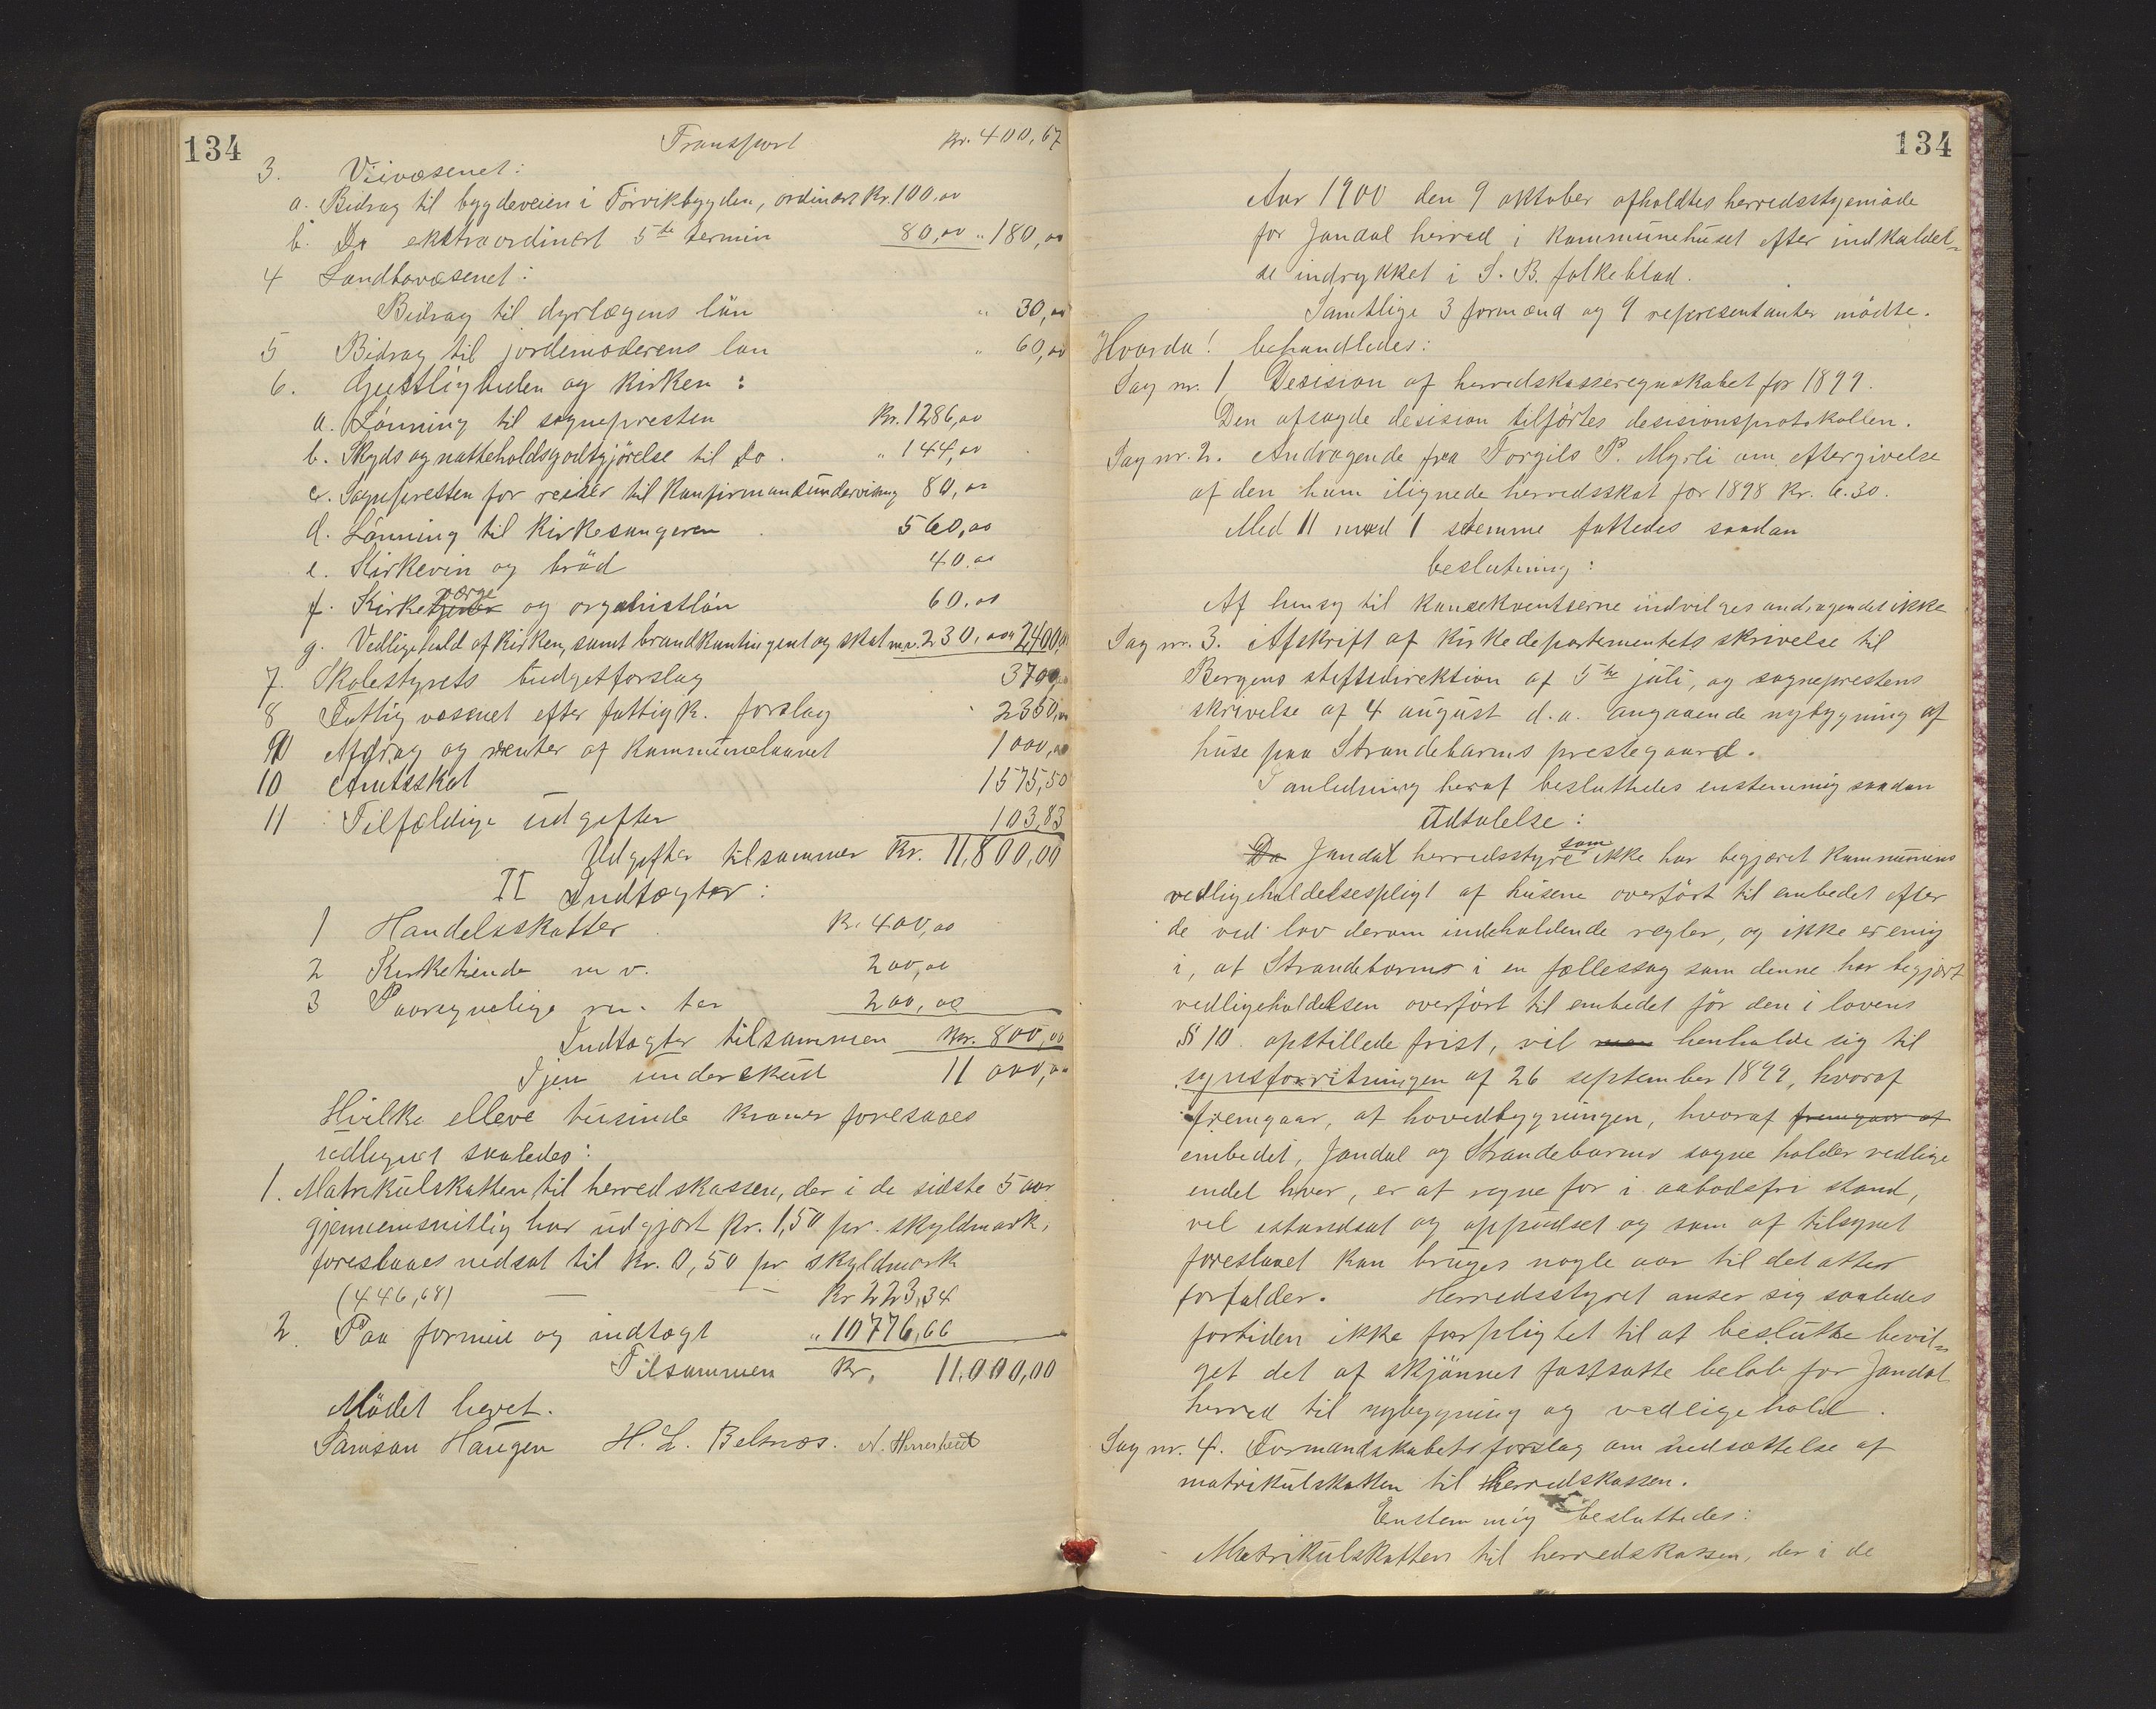 134
Transport kr. 400,67
3. Veivæsenet:
a. Bidrag til bygdeveien i Törvikbygden, ordinært kr. 100,00
b. Do ekstraordinært 5te termin 80,00 " 180,00
4 Landbovæsenet:
Bidrag til dyrlægens lön " 30,00
5 Bidrag til jordemoderens løn " 60,00
6. Geistligheden og kirken:
a. Lönning til sognepresten Kr. 1286,00
b. Skyds og natteholdsgodtgjörelse til Do. " 144,00
c. Sognepresten for reiser til konfirmantundervisning 80,00
d. Lönning til kirkesangeren 560,00
e. Kirkevin og bröd 40.00
f. Kirkeværge og organistlön 60.00
g. Vedligehold af kirken, samt brandkontingent og skat m.v. 230,00 " 2400,00
7. Skolestyrets budgetforslag 3700,00
8 Fattigvæsenet efter fattigk. forslag 2350,00
9 Afdrag og renter af kommunelaanet 1000,00
10 Amtsskat 1575,50
11 Tilfældige udgifter 103,83
Udgifter tilsammen Kr. 11,800,00
II Indtægter:
1 Handelsskatter Kr. 400,00
2 Kirketiende m v. 200,00
3 Paaregnelige renter 200,00
Indtægter tilsammen Kr. 800,00
Igjen underskud 11 000,00
Hvilke elleve tusinde kroner foreslaaes
udlignet saaledes:
1. Matrikulskatten til herredskassen, der i de sidste 5 aar
gjennemsnitlig har udgjort kr. 1,50 pr. skyldmark,
foreslaaes nedsat til kr. 0,50 pr skyldmark
(446,68) — " — Kr 223,34
2. Paa formue og indtægt " 10776,66
Tilsammen Kr. 11.000,00
Mödet hevet.
Samson Haugen H. L. Belsnæs. N. Herrestvedt
134
Aar 1900 den 9 oktober afholdtes herredsstyremöde
for Jondal herred i kommunehuset efter indkaldel-
se indrykket i S. B. folkeblad.
Samtlige 3 formænd og 9 representanter mödte.
Hvorda! behandledes:
Sag nr. 1 Desision af herredskasseregnskabet for 1899.
Den afsagde desision tilförtes desisionsprotokollen.
Sag nr. 2. Andragende fra Torgils P. Myrli om eftergivelse
af den ham ilignede herredsskat for 1898 kr. 6.30.
Med 11 mod 1 stemme fattedes saadan
beslutning:
Af hensyn til konsekventserne indvilges andragendet ikke
Sag nr. 3. Afskrift af kirkedepartementets skrivelse til
Bergens stiftsdirektion af 5te juli, og sogneprestens
skrivelse af 4 august d.a. angaaende nybygning af
huse paa Strandebarms prestegaard.
I anledning heraf besluttedes enstemmig saadan
Udtalelse:
Da Jondal herredsstyre som ikke har begjæret kommunens
vedligeholdelsespligt af husene overfört til embedet efter
de ved lov derom indeholdende regler, og ikke er enig
i, at Strandebarms i en fællessag som denne har begjært
vedligeholdelsen overfört til embedet för den i lovens
§ 10. opstillede frist, vil henholde sig til
synsforretningen af 26 september 1899, hvoraf
fremgaar, at hovedbygningen, hvoraf fremgaar at
embedet, Jondal og Strandebarms sogne holder vedlige
endel hver, er at regne for i aabodsfri stand,
vel istandsat og oppudset og som af tilsynet
foreslaaet kan bruges nogle aar til det atter
forfalder. Herredsstyret anser sig saaledes
fortiden ikke forpligtet til at beslutte bevil-
get det af skjønnet fastsatte beløb for Jondal
herred til nybygning og vedligehold.
Sag nr. 4. Formandskabets forslag om nedsættelse af
matrikulskatten til herredskassen.
Enstemmig besluttedes:
Matrikulskatten til herredskassen, der i de